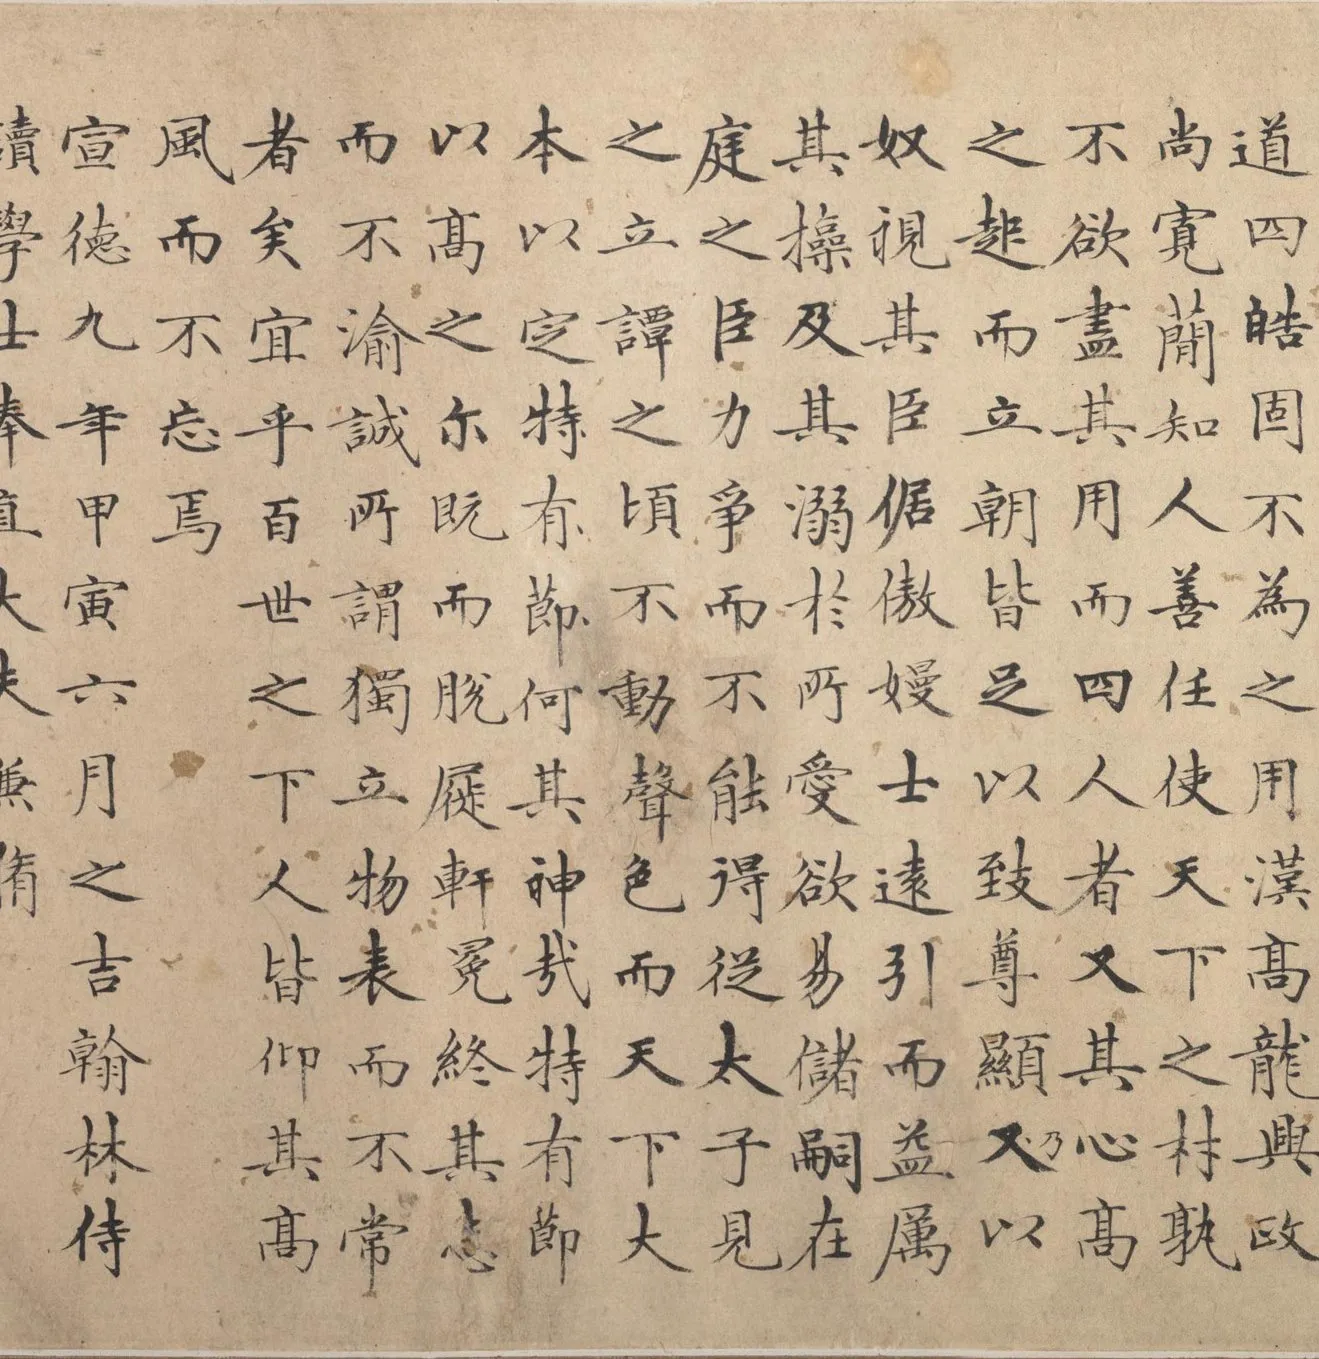 道四皓固不為之用漢髙龍興政
尚寛蕳知人善任使天下之材孰
不欲盡其用而四人者又其心髙
之起而立朝皆足以致尊顯又乃以
奴視其臣倨傲嫚士遠引而益厲
其操及其溺於所愛欲易儲嗣在
庭之臣力爭而不能得從太子見
之立譚之頃不動聲色而天下大
本以定特有節何其神哉特有節
以髙之尔既而脱屣軒冕終其志
而不渝誠所謂獨立物表而不常
者矣宜乎百世之下人皆仰其髙
風而不忘焉
宣徳九年甲寅六月之吉翰林侍
讀學士奉直大夫兼脩